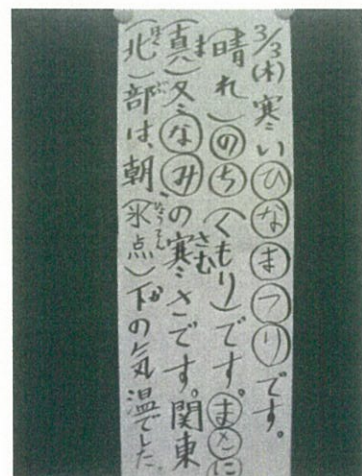 3/3(木)寒いひなまつりです。
(晴れ)のち(くもり)です。まさに
(真)冬なみの寒さです。関東
(北)部は、朝、(氷点)下の気温でした。